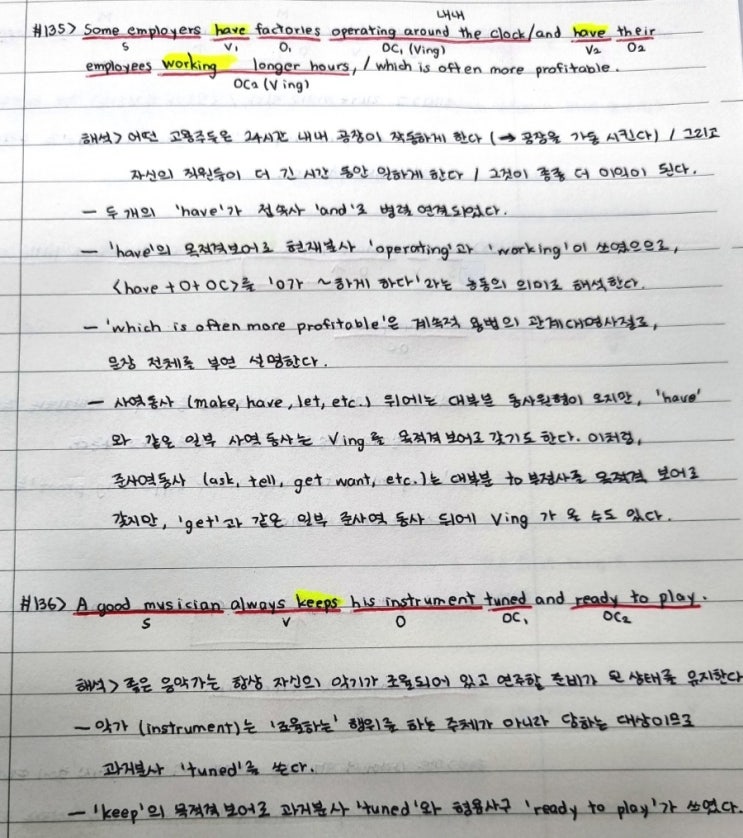 내내
#135> Some employers have factories operating around the clock/and have their
S V₁ O₁ OC₁ (Ving) V₂ O₂
employees working longer hours, / which is often more profitable.
OC₂ (Ving)
해석> 어떤 고용주들은 24시간 내내 공장이 작동하게 한다 (→ 공장을 가동 시킨다) / 그리고
자신의 직원들이 더 긴 시간 동안 일하게 한다 / 그것이 종종 더 이익이 된다.
– 두 개의 'have'가 접속사 'and'로 병렬 연결되었다.
– 'have'의 목적격보어로 현재분사 'operating'과 'working'이 쓰였으므로,
<have + O + OC>를 'O가 ~하게 하다'라는 능동의 의미로 해석한다.
– 'which is often more profitable'은 계속적 용법의 관계대명사절로,
문장 전체를 부연 설명한다.
– 사역동사 (make, have, let, etc.) 뒤에는 대부분 동사원형이 오지만, 'have'
와 같은 일부 사역 동사는 Ving를 목적격 보어로 갖기도 한다. 이처럼,
준사역동사 (ask, tell, get want, etc.)는 대부분 to 부정사를 목적격 보어로
갖지만, 'get'과 같은 일부 준사역 동사 뒤에 Ving 가 올 수도 있다.
#136> A good musician always keeps his instrument tuned and ready to play.
S V O OC₁ OC₂
해석> 좋은 음악가는 항상 자신의 악기가 조율되어 있고 연주할 준비가 된 상태를 유지한다
– 악기 (instrument)는 '조율하는' 행위를 하는 주체가 아니라 당하는 대상이므로
과거분사 'tuned'를 쓴다.
– 'keep'의 목적격 보어로 과거분사 'tuned'와 형용사구 'ready to play'가 쓰였다.